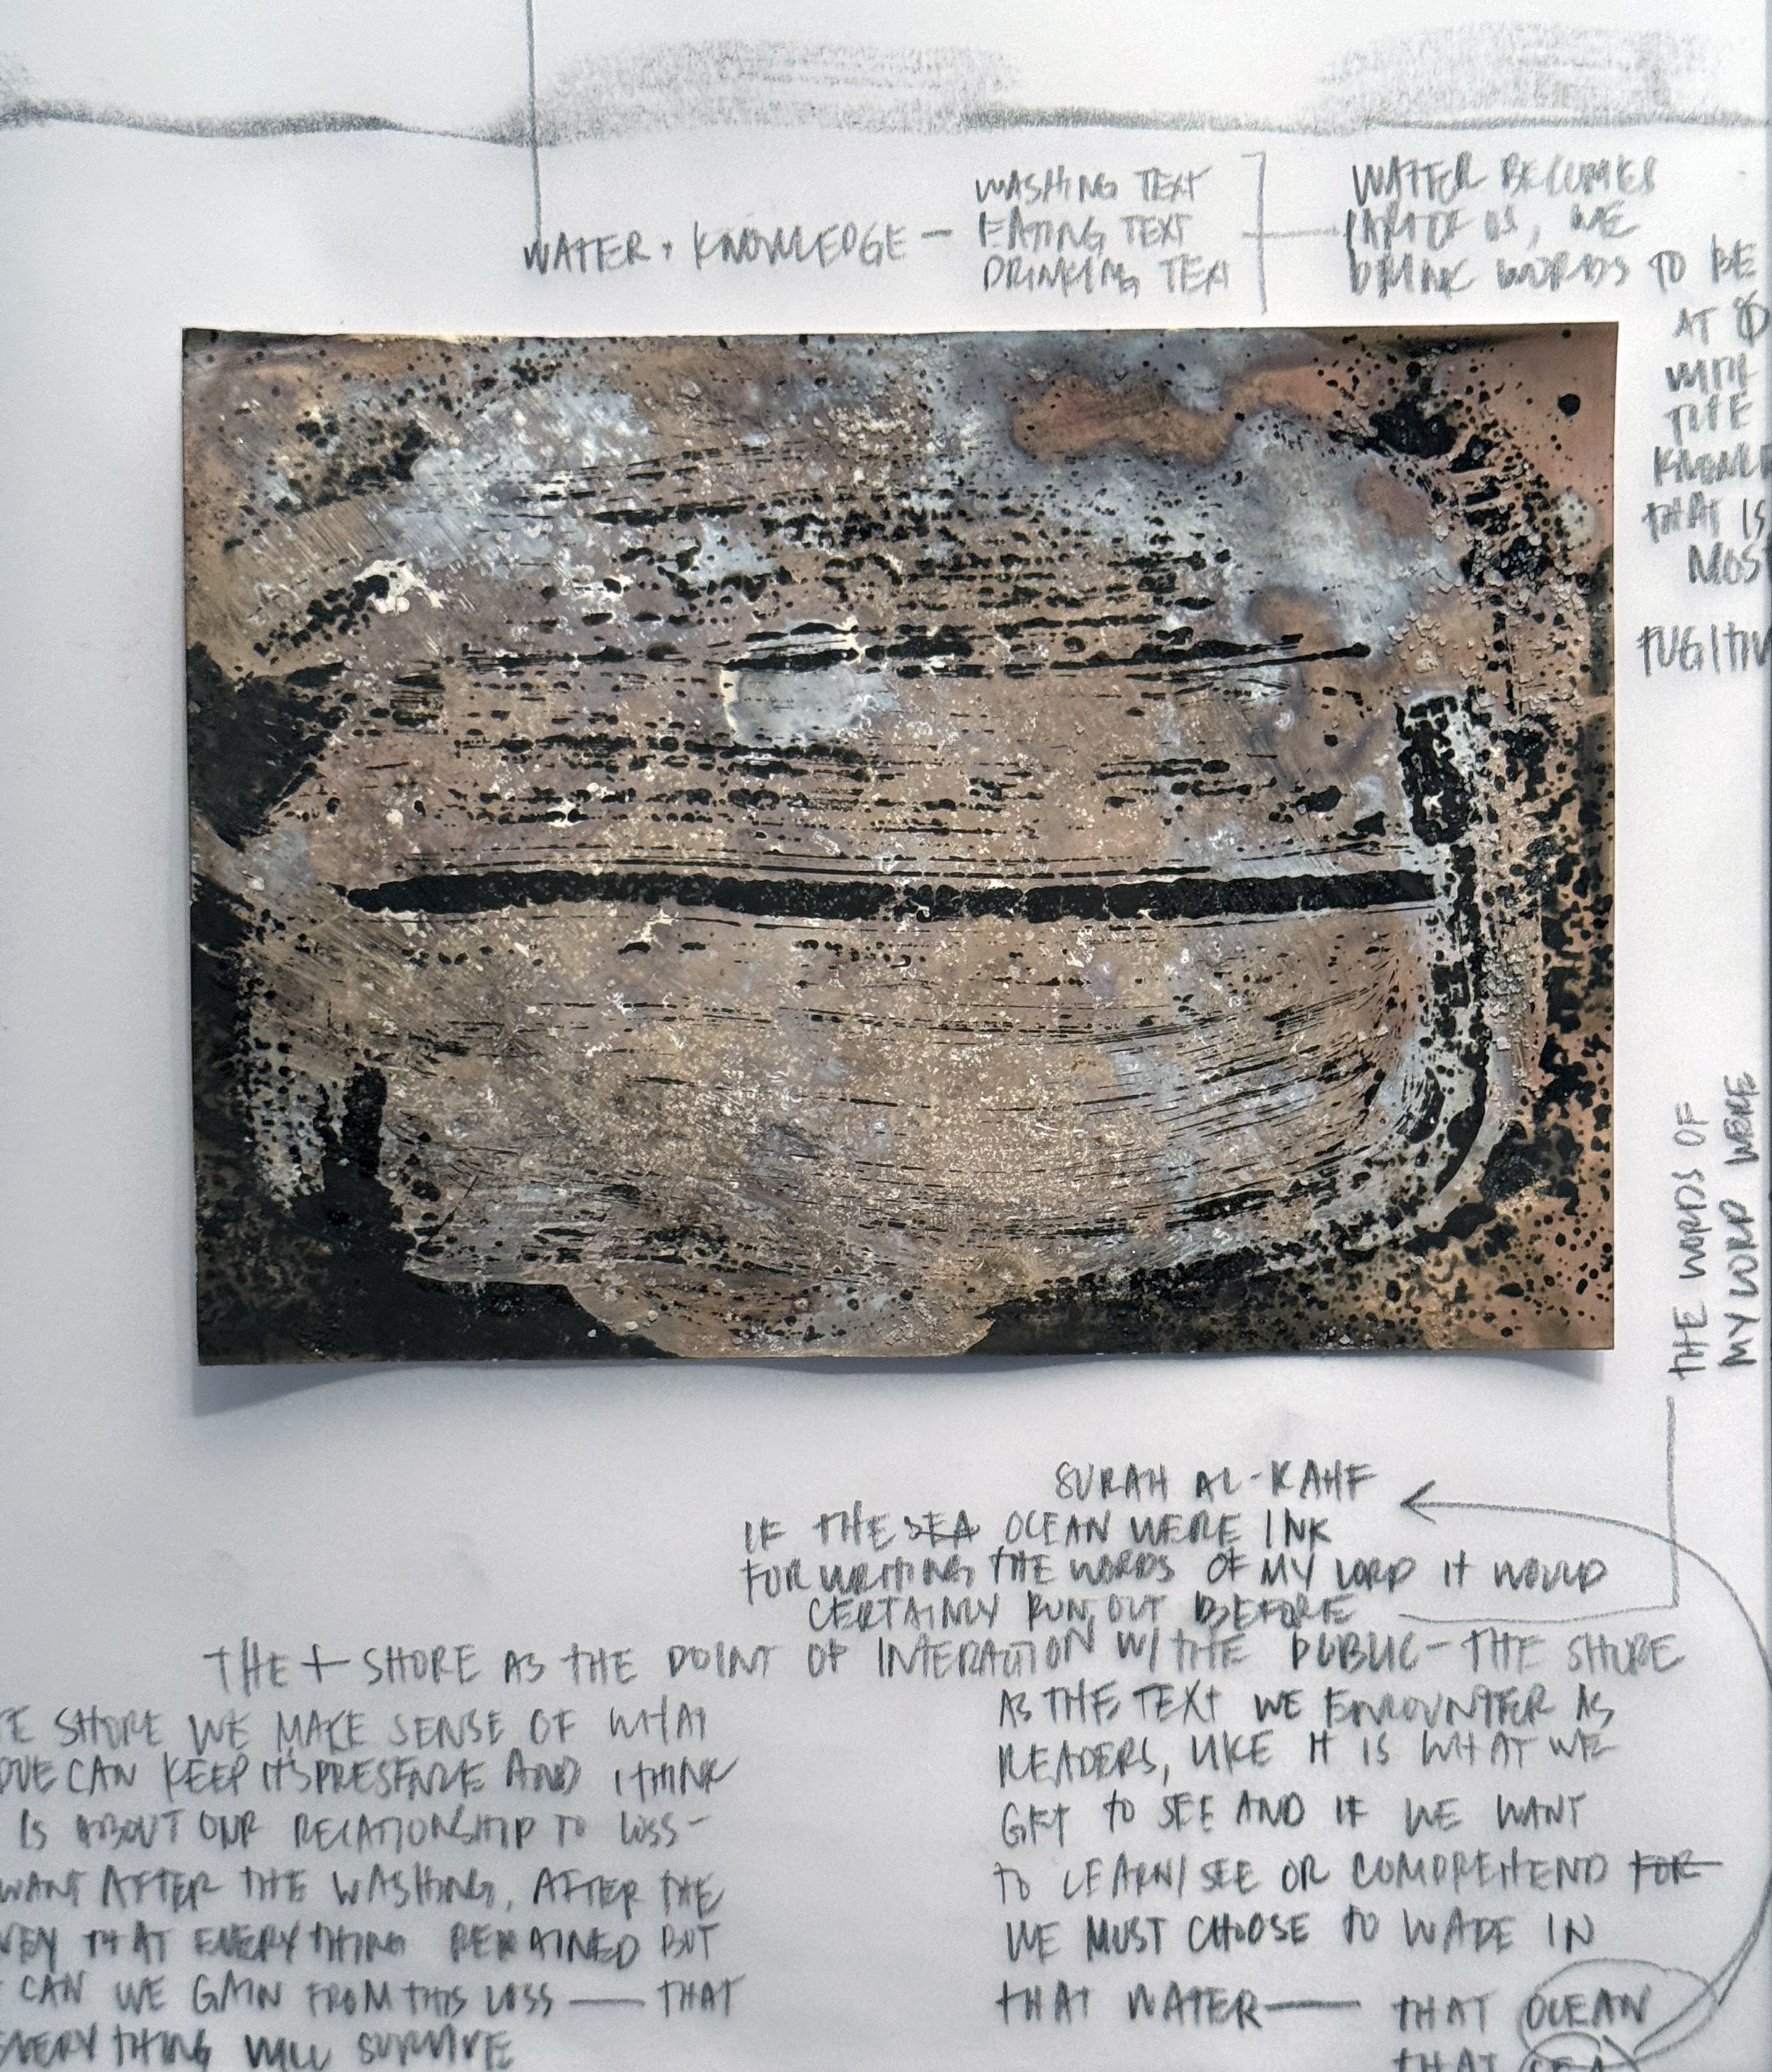 WATER + KNOWLEDGE —
WASHING TEXT
EATING TEXT
DRINKING TEXT
WATER BECOMES
PART OF US, WE
DRINK WORDS TO BE
AT
WITH
THE
THAT IS
MOST
THE WORDS OF
MY LORD WERE
SURAH AL-KAHF
IF THE SEA OCEAN WERE INK
FOR WRITING THE WORDS OF MY LORD IT WOULD
CERTAINLY RUN OUT BEFORE
THE SHORE AS THE POINT OF INTERACTION W/ THE PUBLIC — THE SHORE
SHORE WE MAKE SENSE OF WHAT
CAN KEEP ITS PRESENCE AND I THINK
IS ABOUT OUR RELATIONSHIP TO LOSS —
WANT AFTER THE WASHING, AFTER THE
THAT EVERYTHING REMAINED BUT
CAN WE GAIN FROM THIS LOSS — THAT
EVERYTHING WILL SURVIVE
AS THE TEXT WE ENCOUNTER AS
READERS, LIKE IT IS WHAT WE
GET TO SEE AND IF WE WANT
TO LEARN/SEE OR COMPREHEND FOR
WE MUST CHOOSE TO WADE IN
THAT WATER — THAT OCEAN
THAT SEA